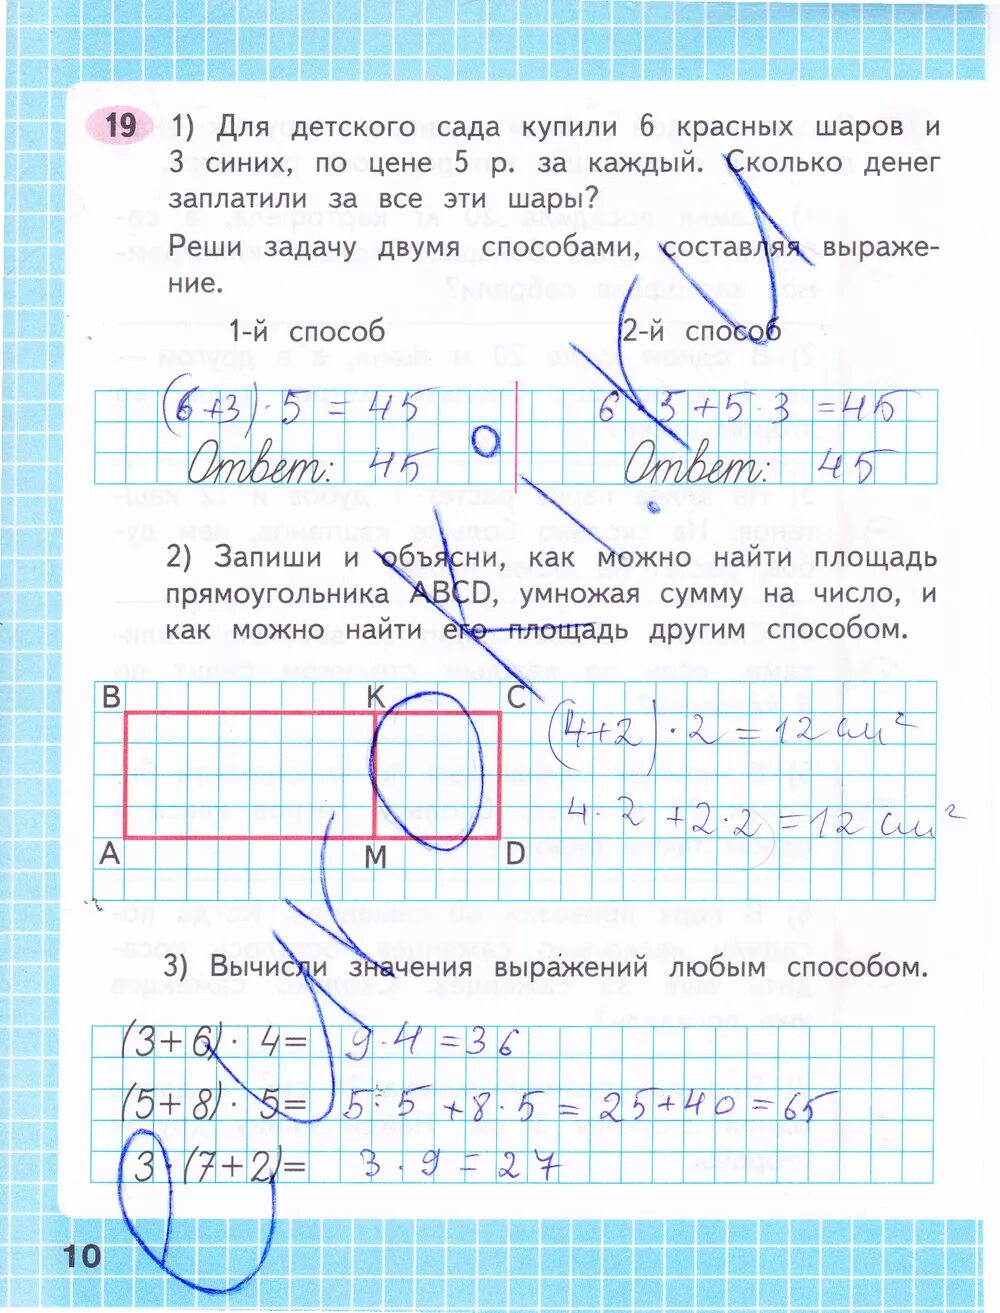 19 1) Для детского сада купили 6 красных шаров и
3 синих, по цене 5 р. за каждый. Сколько денег
заплатили за все эти шары?
Реши задачу двумя способами, составляя выраже-
ние.
1-й способ 2-й способ
(6+3)·5=45 6·5+5·3=45
Ответ: 45 Ответ: 45
2) Запиши и объясни, как можно найти площадь
прямоугольника ABCD, умножая сумму на число, и
как можно найти его площадь другим способом.
B K C
(4+2)·2=12 см²
4·2+2·2=12 см²
A M D
3) Вычисли значения выражений любым способом.
(3+6)· 4= 9·4=36
(5+8)· 5= 5·5+8·5=25+40=65
3·(7+2)= 3·9=27
10